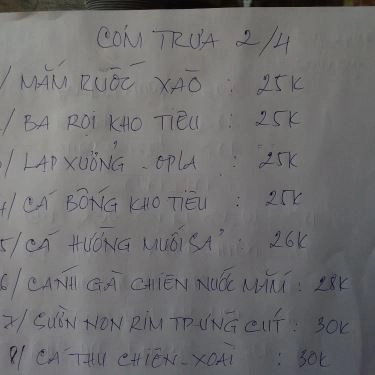 CƠM TRƯA 2/4
/ MẮM RUỐC XÀO : 25K
/ BA RỌI KHO TIÊU : 25K
/ LẠP XƯỞNG - OPLA : 25K
4/ CÁ BỐNG KHO TIÊU : 25K
5/ CÁ HƯỜNG MUỐI SẢ : 26K
6/ CÁNH GÀ CHIÊN NƯỚC MẮM : 28K
7/ SƯỜN NON RIM TRỨNG CÚT : 30K
8/ CÁ THU CHIÊN - XOÀI : 30K